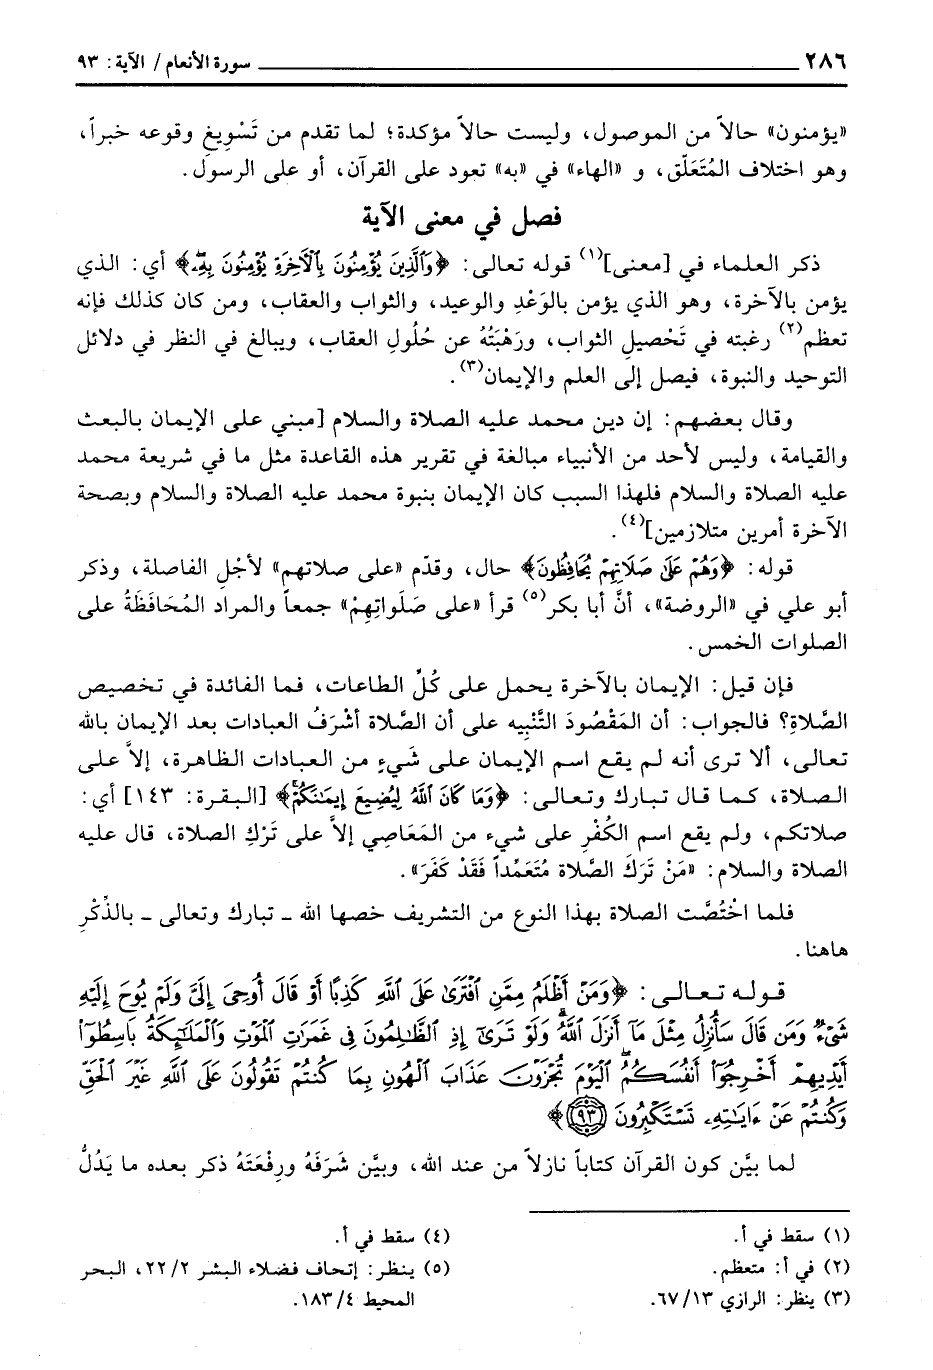 ٢٨٦ سورة الأنعام / الآية: ٩٣
«يؤمنون» حالاً من الموصول، وليست حالاً مؤكدة؛ لما تقدم من تَسْوِيغِ وقوعه خبراً،
وهو اختلاف المُتَعَلّق، و «الهاء» في «به» تعود على القرآن، أو على الرسول.
فصل في معنى الآية
ذكر العلماء في [معنى](١) قوله تعالى: ﴿وَٱلَّذِينَ يُؤْمِنُونَ بِٱلْأَخِرَةِ يُؤْمِنُونَ بِهِۦ﴾ أي: الذي
يؤمن بالآخرة، وهو الذي يؤمن بالوَعْدِ والوعيد، والثواب والعقاب، ومن كان كذلك فإنه
تعظم(٢) رغبته في تَحْصيلِ الثواب، ورَهْبَتُهُ عن حُلُولِ العقاب، ويبالغ في النظر في دلائل
التوحيد والنبوة، فيصل إلى العلم والإيمان(٣).
وقال بعضهم: إن دين محمد عليه الصلاة والسلام [مبني على الإيمان بالبعث
والقيامة، وليس لأحد من الأنبياء مبالغة في تقرير هذه القاعدة مثل ما في شريعة محمد
عليه الصلاة والسلام فلهذا السبب كان الإيمان بنبوة محمد عليه الصلاة والسلام وبصحة
الآخرة أمرين متلازمين](٤).
قوله: ﴿وَهُمْ عَلَىٰ صَلَاتِهِمْ يُحَافِظُونَ﴾ حال، وقدّم «على صلاتهم» لأجْلِ الفاصلة، وذكر
أبو علي في «الروضة»، أنَّ أبا بكر(٥) قرأ «على صَلَواتِهِمْ» جمعاً والمراد المُحَافَظَةُ على
الصلوات الخمس.
فإن قيل: الإيمان بالآخرة يحمل على كُلِّ الطاعات، فما الفائدة في تخصيص
الصَّلاةِ؟ فالجواب: أن المَقْصُودَ التَّنْبِيه على أن الصَّلاة أشْرَفُ العبادات بعد الإيمان بالله
تعالى، ألا ترى أنه لم يقع اسم الإيمان على شَيءٍ من العبادات الظاهرة، إلاَّ على
الصلاة، كما قال تبارك وتعالى: ﴿وَمَا كَانَ ٱللَّهُ لِيُضِيعَ إِيمَٰنَكُمْ﴾ [البقرة: ١٤٣] أي:
صلاتكم، ولم يقع اسم الكُفْرِ على شيء من المَعَاصِي إلاَّ على تَرْكِ الصلاة، قال عليه
الصلاة والسلام: «مَنْ تَرَكَ الصَّلاة مُتَعَمِّداً فَقَدْ كَفَرَ».
فلما اخْتُصَّت الصلاة بهذا النوع من التشريف خصها الله ـ تبارك وتعالى ـ بالذِّكْرِ
هاهنا.
قوله تعالى: ﴿وَمَنْ أَظْلَمُ مِمَّنِ ٱفْتَرَىٰ عَلَى ٱللَّهِ كَذِبًا أَوْ قَالَ أُوحِىَ إِلَىَّ وَلَمْ يُوحَ إِلَيْهِ
شَىْءٌ وَمَن قَالَ سَأُنزِلُ مِثْلَ مَآ أَنزَلَ ٱللَّهُ وَلَوْ تَرَىٰٓ إِذِ ٱلظَّٰلِمُونَ فِى غَمَرَٰتِ ٱلْمَوْتِ وَٱلْمَلَٰٓئِكَةُ بَاسِطُوٓا۟
أَيْدِيهِمْ أَخْرِجُوٓا۟ أَنفُسَكُمُ ٱلْيَوْمَ تُجْزَوْنَ عَذَابَ ٱلْهُونِ بِمَا كُنتُمْ تَقُولُونَ عَلَى ٱللَّهِ غَيْرَ ٱلْحَقِّ
وَكُنتُمْ عَنْ ءَايَٰتِهِۦ تَسْتَكْبِرُونَ (٩٣)﴾
لما بيَّن كون القرآن كتاباً نازلاً من عند الله، وبيَّن شَرَفَهُ ورِفْعَتَهُ ذكر بعده ما يَدُلُّ
(١) سقط في أ.
(٢) في أ: متعظم.
(٣) ينظر: الرازي ١٣/ ٦٧.
(٤) سقط في أ.
(٥) ينظر: إتحاف فضلاء البشر ٢/ ٢٢، البحر
المحيط ٤/ ١٨٣.